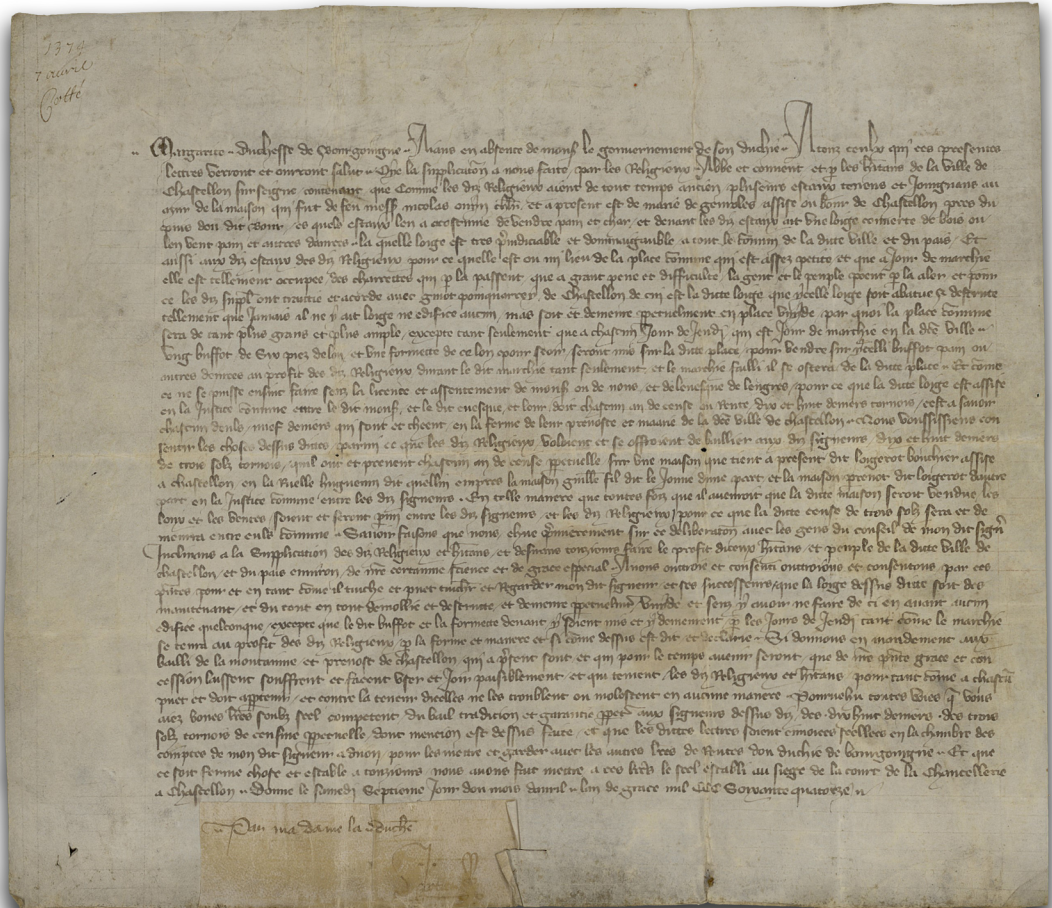 1374
7 avril
Cotté
Marguerite duchesse de Bourgoingne Aians en absence de mons le gouvernement de son duchie A touz ceulx qui ces presentes
lettres verront et orront salut Oye la supplicacion a nous faite par les Religieux Abbe et convent et p les hitans de la ville de
Chastellon sur seigne contenant que Comme les diz Religieux aient de tout temps ancien plusieurs estaux tenens et Joingnans au
de la maison qui fut de feu mess nicolas chlr et a present est de marie de assise ou bour de Chastellon pres du
puis dou dit bour es quels estaux len a acostume de vendre pain et char et devant les diz estaux ait une loige coverte de bois ou
len vent pain et autres danrees la quelle loige est tres piudiciable et dommaigauble a tout le comun de la dicte ville et du pais Et
aussi aux diz estaux des diz Religieux pour ce quelle est ou mi lieu de la place comune qui est assez petite et que a Jour de marchie
elle est tellement occupee des charrettes qui p la passent que a grant pene et difficulte la gent et le peuple poent p la aler et pour
ce les diz suppl ont traitie et acorde avec guiot de Chastellon de cui est la dicte loige que ycelle loige soit abatue et destruite
tellement que Jamais il ne y ait loige ne edifice aucun mas soit et demeure ppetuelment en place vuide par quoi la place comune
sera de tant plus grans et plus ample excepte tant seulement que a chascun Jour de Jeudi qui est Jour de marchie en la dicte ville
ung buffot de six piez de lon et une formette de ce lon pour seoir seront mis sur la dicte place pour vendre sur ycelli buffot pain ou
autres denrees au profit des diz Religieux durant le dit marchie tant seulement et le marchie failli il se ostera de la dicte place Et come
ce ne se puisse ensint faire senz la licence et assentement de mons ou de nous et de levesque de lengres pour ce que la dicte loige est assise
en la Justice comune entre le dit mons et le dit evesque et leur doit chascun an de cense ou Rente dix et huit deniers tornois cest a savoir
chascun deulx nuef deniers qui sont et cheent en la ferme de leur prevoste et mairie de la dicte ville de chastellon Nous voussissiens con
sentir les choses dessus dictes parmi ce que les diz Religieux voloient et se offroient de baillier aux diz signeurs dix et huit deniers
de trois solz tornois quil ont et prenent chascun an de cense ppetuelle sur une maison que tient a present dit logerot bouchier assise
a chastellon en la Ruelle huguenin dit empres la maison guille fil dit le Jonne dune part et la maison prenot dit logerot dautre
part en la Justice comune entre les diz signeurs En telle maniere que toutes foiz que il avenroit que la dicte maison seroit vendue les
lours et les ventes soient et seront entre les diz signeurs et les diz Religieux pour ce que la dicte cense de trois solz sera et de
mourra entre eulx comune Savoir faisons que nous ehue premierement sur ce deliberation avec les gens du conseil de mon dit sign
Inclinans a la Supplication des diz Religieux et hitans et desirans touziours faire le profit diceux hitans et peuple de la dicte ville de
chastellon et du pais environ de nre certainne science et de grace especial Avons outroie et consenti outroions et consentons par ces
pntes pour et en tant come il touche et puet toucher et Regarder mon dit signeur et ses successeurs que la loige dessus dicte soit des
maintenant et du tout en tout demollie et destruite et demeure ppetuelment vuide et senz y avoir ne faire de ci en avant aucun
edifice quelconque excepte que le dit buffot et la formette devant y soient mis et y demeurent p les Jours de Jeudi tant come le marchie
se tenra au profit des diz Religieux p la forme et maniere et si come dessus est dit et declairie Si donnons en mandement aux
bailli de la montainne et prevost de chastellon qui a present sont et qui pour le temps avenir seront que de nre pnte grace et con
cession laissent souffrent et facent user et Joir paisiblement et qui tenent les diz Religieux et hitans pour tant come a chascu
puet et doit apptenir et contre la teneur dicelles ne les troublent ou molestent en aucune maniere Pourveu toutes voies q vous
aiez bones lres soubz seel competent du bail tradition et garantie ppet aux signeurs dessus diz des dix huit deniers des trois
solz tornois de censive ppetuelle dont mencion est dessus faite et que les dictes lettres soient envoiees seellees en la chambre des
comptes de mon dit signeur a dijon pour les mettre et garder avec les autres lres de Rentes dou duchie de bourgoingne Et que
ce soit ferme chose et estable a touziours nous avons fait mettre a ces lres le seel establi au siege de la court de la Chancellerie
a Chastellon Donne le samedi Septieme Jour dou mois davril lan de grace mil CCC Soixante quatorze
Par ma dame la duchesse